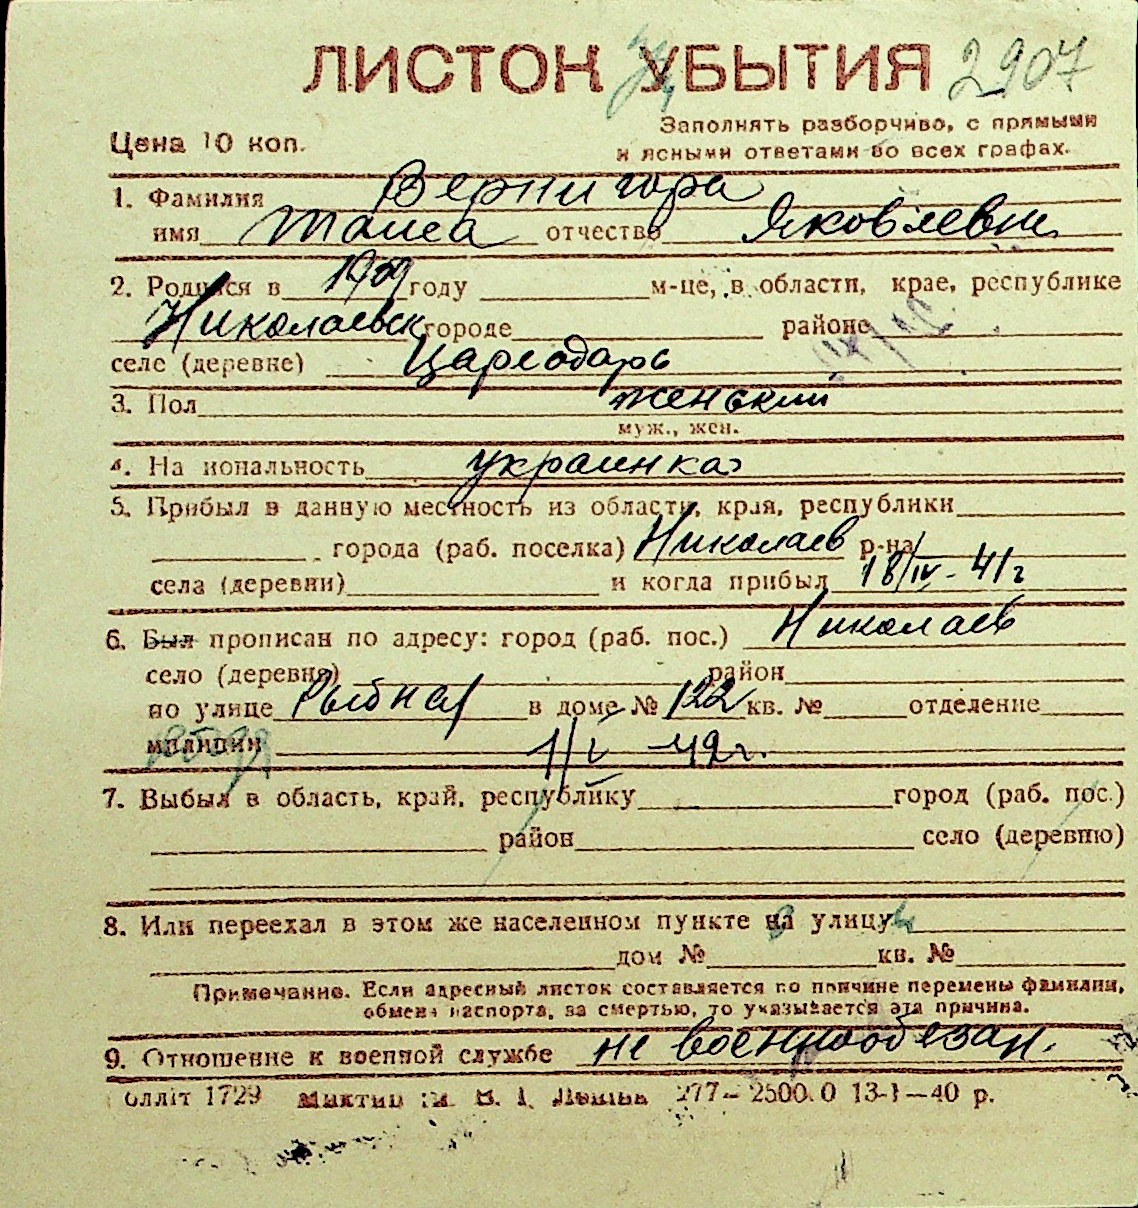 ЛИСТОК УБЫТИЯ 2907
Цена 10 коп.
Заполнять разборчиво, с прямыми
и ясными ответами во всех графах.
1. Фамилия Вернигора
имя Таиса отчество Яковлевна
2. Родился в 1909 году м-це, в области, крае, республике
Николаевск городе районе
селе (деревне) Цареодарь
3. Пол женский
муж., жен.
4. На иональность украинка
5. Прибыл в данную местность из области, края, республики
города (раб. поселка) Николаев р-на
села (деревни) и когда прибыл 18/IV-41г
6. Был прописан по адресу: город (раб. пос.) Николаев
село (деревня) район
по улице Рыбная в доме № 122 кв. № отделение
милиции 1/V 42г.
7. Выбыл в область, край, республику город (раб. пос.)
район село (деревню)
8. Или переехал в этом же населенном пункте на улицу
дом № кв. №
Примечание. Если адресный листок составляется по причине перемены фамилии,
обмена паспорта, за смертью, то указывается эта причина.
9. Отношение к военной службе не военнообязан.
оллiт 1729 277— 2500.0 13-I—40 р.